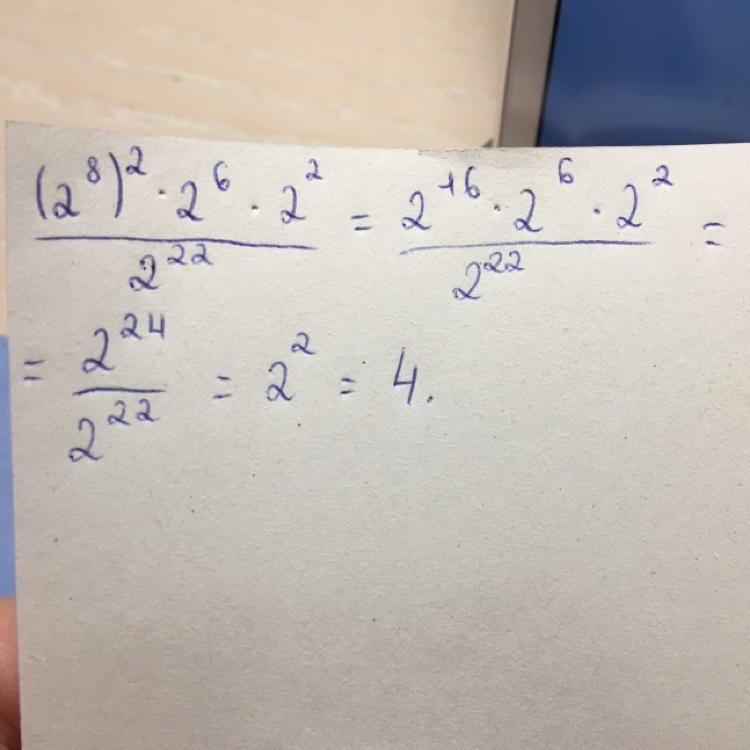 (2⁸)² · 2⁶ · 2² / 2²² = 2¹⁶ · 2⁶ · 2² / 2²² =
= 2²⁴ / 2²² = 2² = 4.